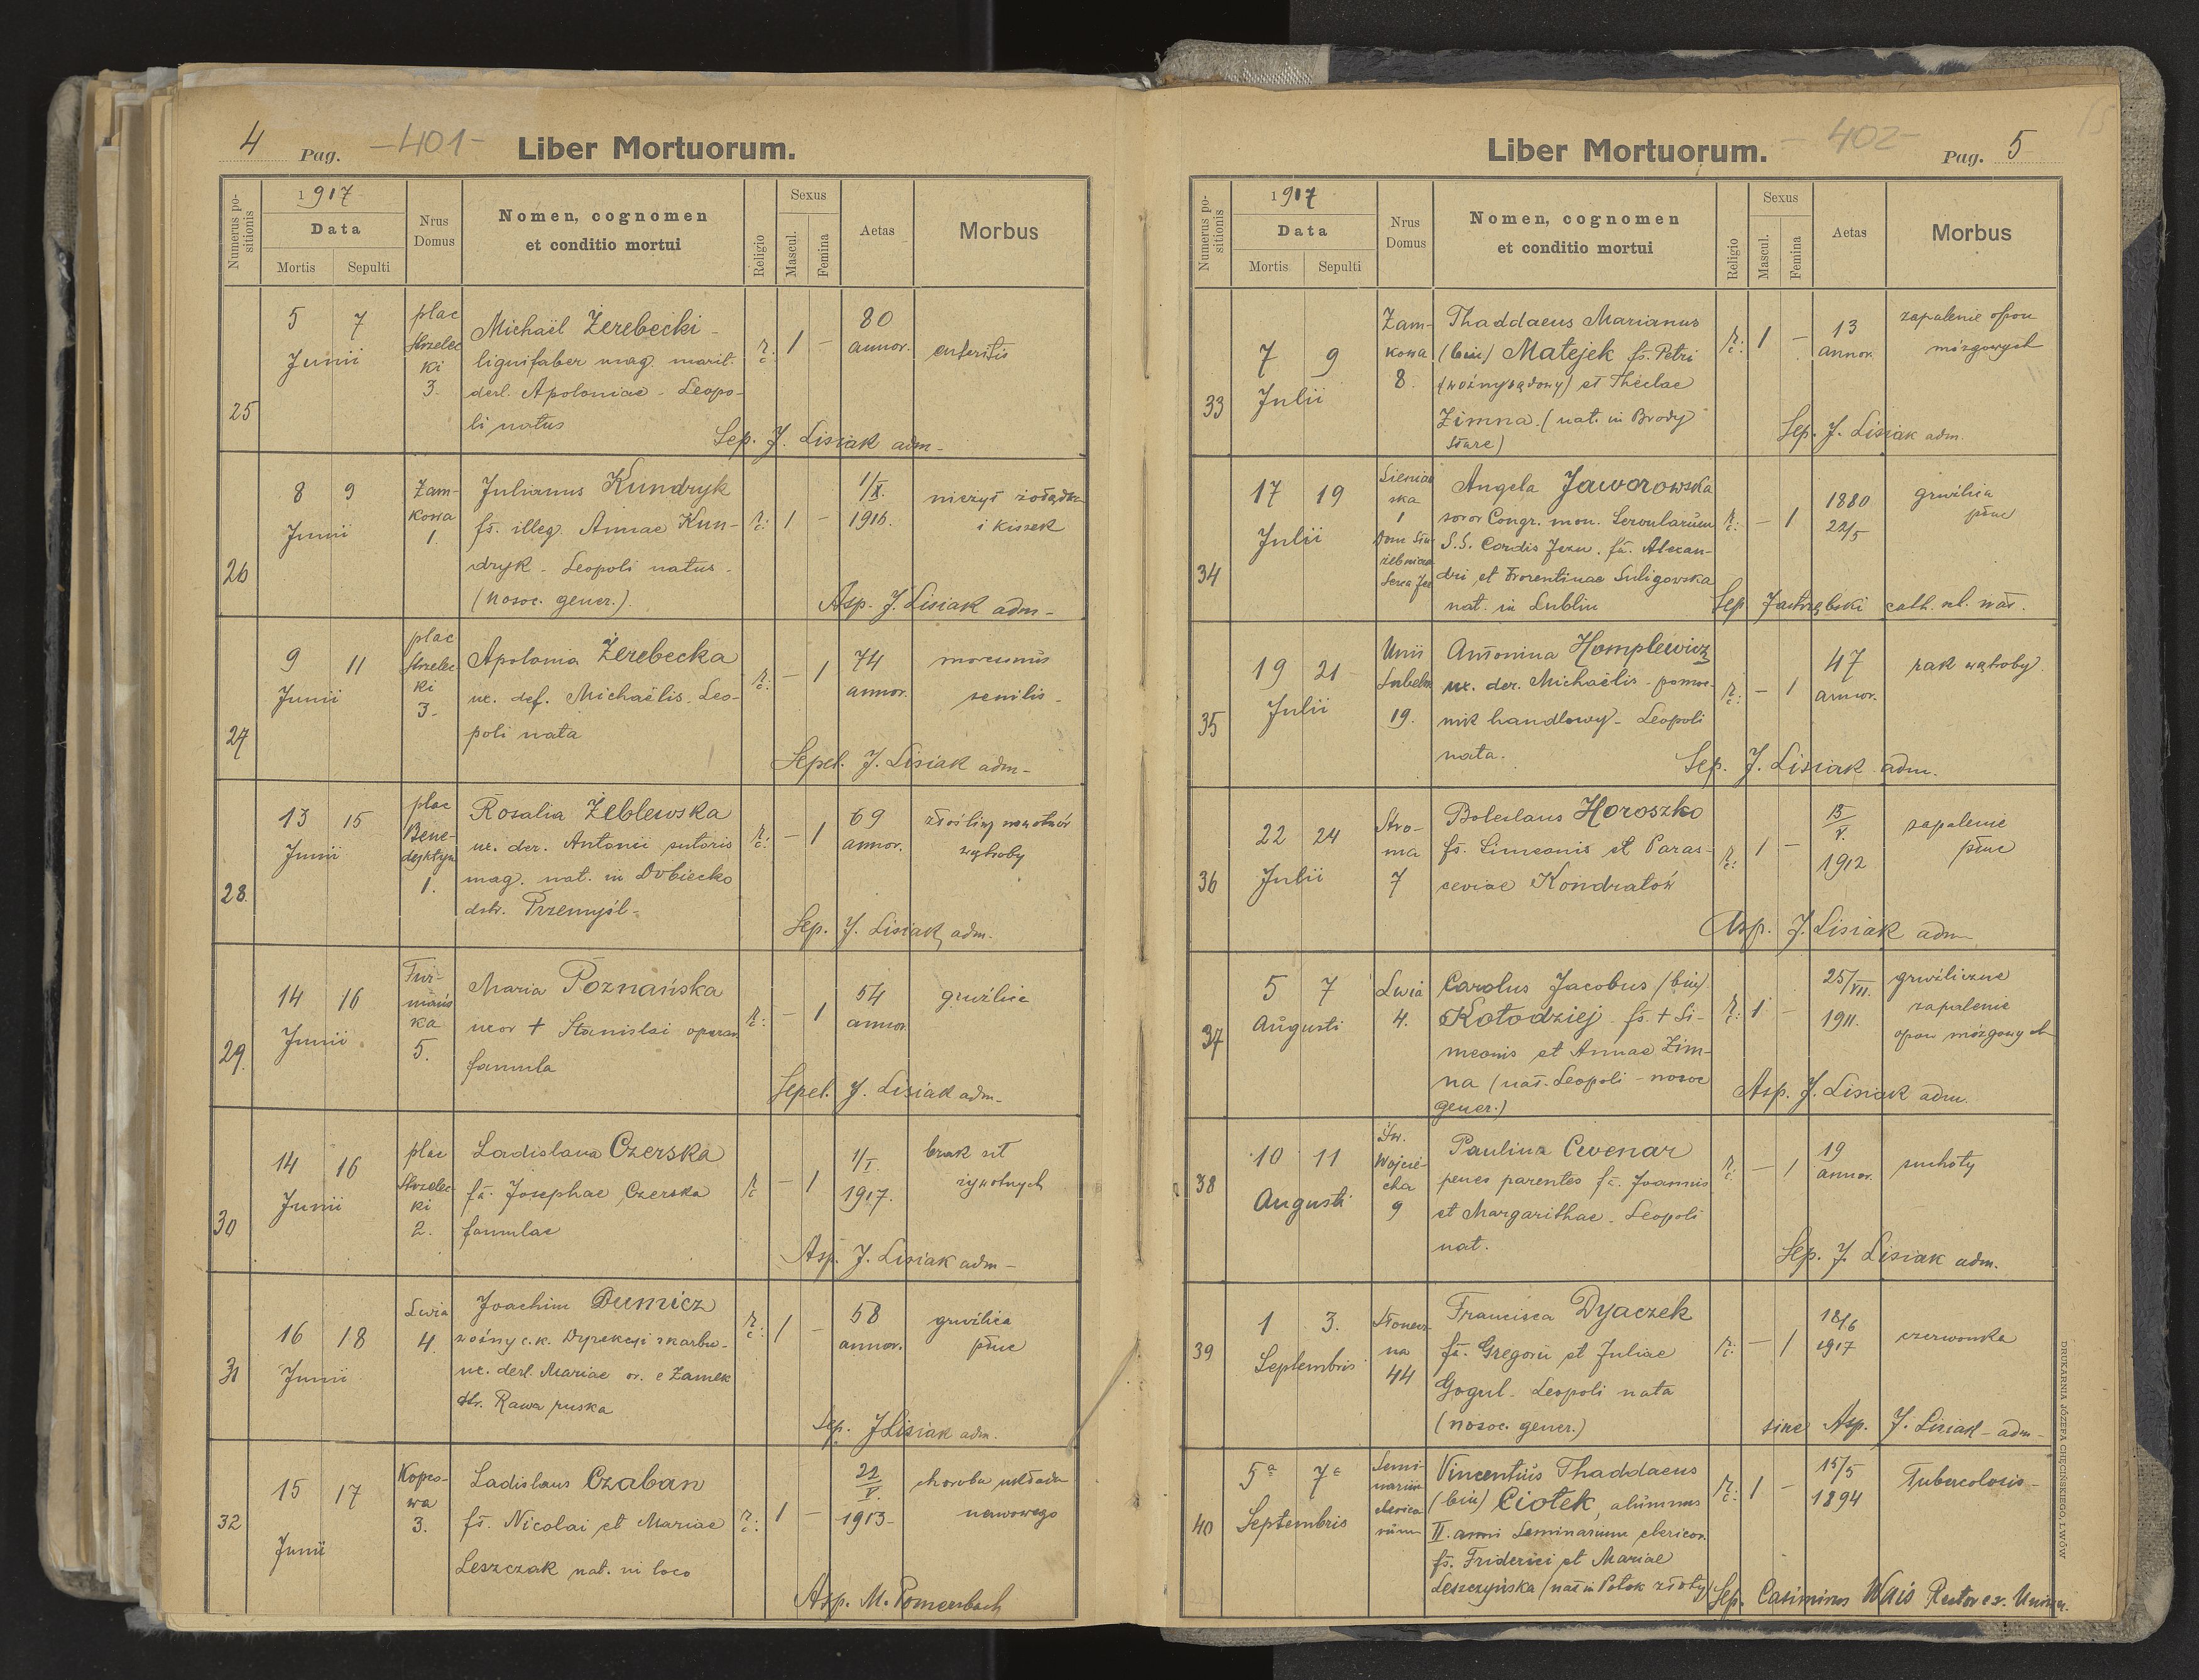 4 Pag. -401- Liber Mortuorum.
Numerus positionis
1917
Data
Mortis Sepulti
Nrus Domus
Nomen, cognomen et conditio mortui
Religio
Sexus
Mascul. Femina
Aetas
Morbus
25
5 7
Junii
plac
Strzelec
ki
3.
Michaël Żerebecki -
lignifaber mag. marit.
derel. Apoloniae - Leopo-
li natus
r. c. 1 -
80
annor.
enteritis
Sep. J. Lisiak adm-
26
8 9
Junii
Zam-
kowa
1.
Julianus Kundryk
fs. illeg. Annae Kun-
dryk - Leopoli natus -
(nosoc. gener.).
r. c. 1 -
1/X.
1916.
nieżyt żołądka
i kiszek
Asp. J. Lisiak adm-
27
9 11
Junii
plac
Strzelec
ki
3.
Apolonia Żerebecka
ux. def. Michaëlis. Leo-
poli nata
r. c. - 1
74
annor.
senilis -
Sepel. J. Lisiak adm-
28.
13 15
Junii
plac
Bene-
dyktyn
1.
Rosalia Żeblewska
ux. der. Antonii sutoris
mag. nat. in Dubiecko
dstr. Przemyśl-
r. c. - 1
69
annor.
złośliwy nowotwór
wątroby
Sep. J. Lisiak, adm.
29.
14 16
Junii
Fur-
mańs
ka
5.
Maria Poznańska
uxor + Stanislai operar.
famula
r. c. - 1
54
annor
gruźlica
Sepel. J. Lisiak adm-
30
14 16
Junii
plac
Strzelec
ki
2.
Ladislava Czerska
fa. Josephae Czerska
famulae
r. c - 1
1/I.
1917.
brak sił
żywotnych
Asp. J. Lisiak adm-
31
16 18
Junii
Lwia
4.
Joachim Dumicz
woźny c.k. Dyrekcyi skarbu-
ux. derl. Mariae or. e Zamek
dtr. Rawa ruska
r. c. 1 -
58
annor.
gruźlica
płuc
Sep. J Lisiak adm.
32
15 17
Junii
Koper-
wa
3.
Ladislaus Czaban
fs. Nicolai et Mariae
Leszczak nat. in loco
r. c. 1 -
22
V.
1913-
choroba układu
nerwowego
Asp. M. Pomersbach
Liber Mortuorum. -402- Pag. 5
Numerus positionis
1917
Data
Mortis Sepulti
Nrus Domus
Nomen, cognomen et conditio mortui
Religio
Sexus
Mascul. Femina
Aetas
Morbus
33
7 9
Julii
Zam-
kowa
8.
Thaddaeus Marianus
(bin) Matejek fs. Petri
(woźny sądowy) et Theclae
Zimna. (nat. in Brody
stare)
r. c. 1 -
13
annor.
zapalenie opon
mózgowych
Sep. J. Lisiak adm.
34
17 19
Julii
Sieniaw
ska
1
Dom Słu-
żebnicze
Serca Jez
Angela Jaworowska
soror Congr. mon. Servularum
S.S. Cordis Jesu. fa. Alexan-
dri et Florentinae Suligowska
nat. in Lublin
r. c. - 1
1880
22/5
gruźlica
płuc
Sep Jastrzębski cath. 
35
19 21
Julii
Unii
Lubels
19.
Antonina Homplewicz
ux. der. Michaëlis - pomoc-
nik handlowy - Leopoli
nata.
r. c. - 1
47
annor.
rak wątroby.
Sep. J. Lisiak adm.
36
22 24
Julii
Stro-
ma
7
Boleslaus Horoszko
fs. Simeonis et Paras-
ceviae Kondratów
r. c. 1 -
15
V.
1912
zapalenie
płuc
Asp. J. Lisiak adm
37
5 7
Augusti
Lwia
4.
Carolus Jacobus (bin).
Kołodziej - fs. + Si-
meonis et Annae Zim-
na (nat. Leopoli - nosoc
gener.)
r. c. 1 -
25/VII.
1911.
gruźlicze
zapalenie
opon mózgowych
Asp. J. Lisiak adm.
38
10 11
Augusti
Św.
Wojcie-
cha
9
Paulina Cwenar
penes parentes fa. Joannis
et Margarithae - Leopoli
nat.
r. c. - 1
19
annor.
suchoty
Sep. J. Lisiak adm.
39
1 3.
Septembris
Słonecz
na
44
Francisca Dyaczek
fa. Gregorii et Juliae
Gogul - Leopoli nata
(nosoc. gener.)
r. c. - 1
18/6
1917
czerwonka
sine Asp. J. Lisiak - adm-
40
5ª 7ª
Septembris
Semi-
narium
clerico
rum
Vincentius Thaddaeus
(bin) Ciołek, alumnus
II. anni Seminarium clericor.
fs. Friderici et Mariae
Leszczyńska (nat in Potok złoty)
r. c. 1 -
15/5
1894
Tuberculosis -
Sep. Casimirus Wais Rector er. Univer.
DRUKARNIA JÓZEFA CHĘCIŃSKIEGO, LWÓW